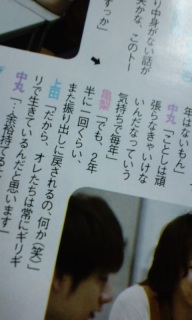 り中身がない話が
笑かな、このトー
すっか」
年はいいもん」
中丸「ことしは頑
張らなきゃいけな
いんだなっていう
気持ちで毎年」
亀梨「でも、2年
半に一回くらい、
また振り出しに戻されるの、何か(笑)」
上田「だから、オレたちは常にギリギ
リで生きているんだと思います」
中丸「…余裕持てると